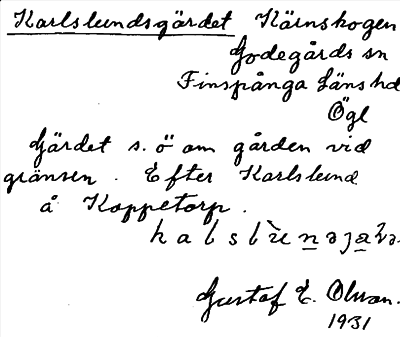 Karlslundsgärdet Kärnskogen
Godegårds sn
Finspånga Länshd
Ögl
Gärdet s. ö om gården vid
gränsen. Efter Karlslund
å Koppetorp.
Gustaf E. Olsson.
1931